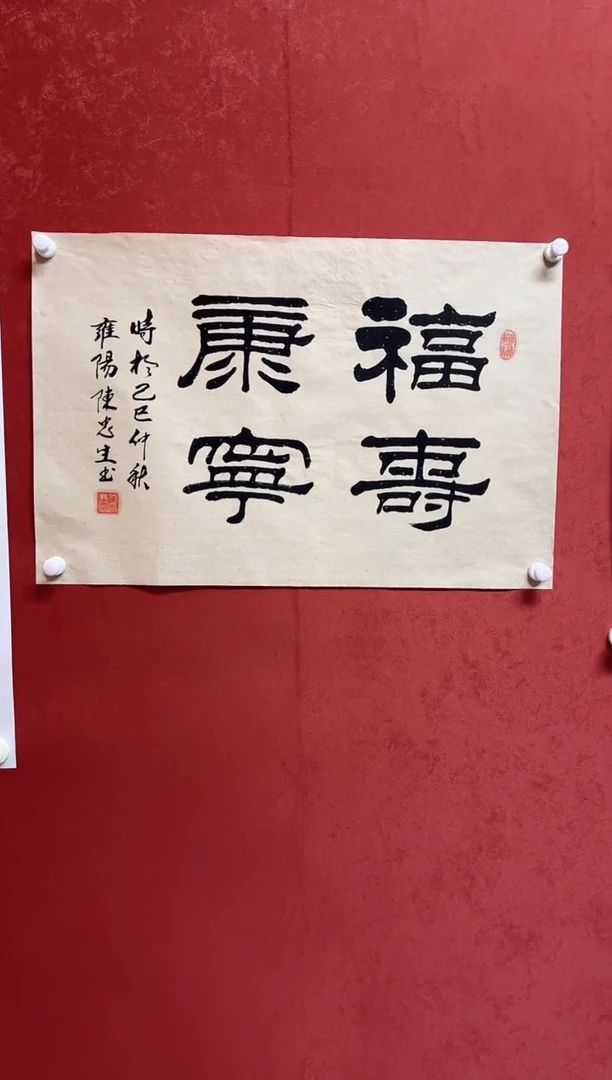 福壽
康寧
時於乙巳仲秋
雍陽陳忠生書